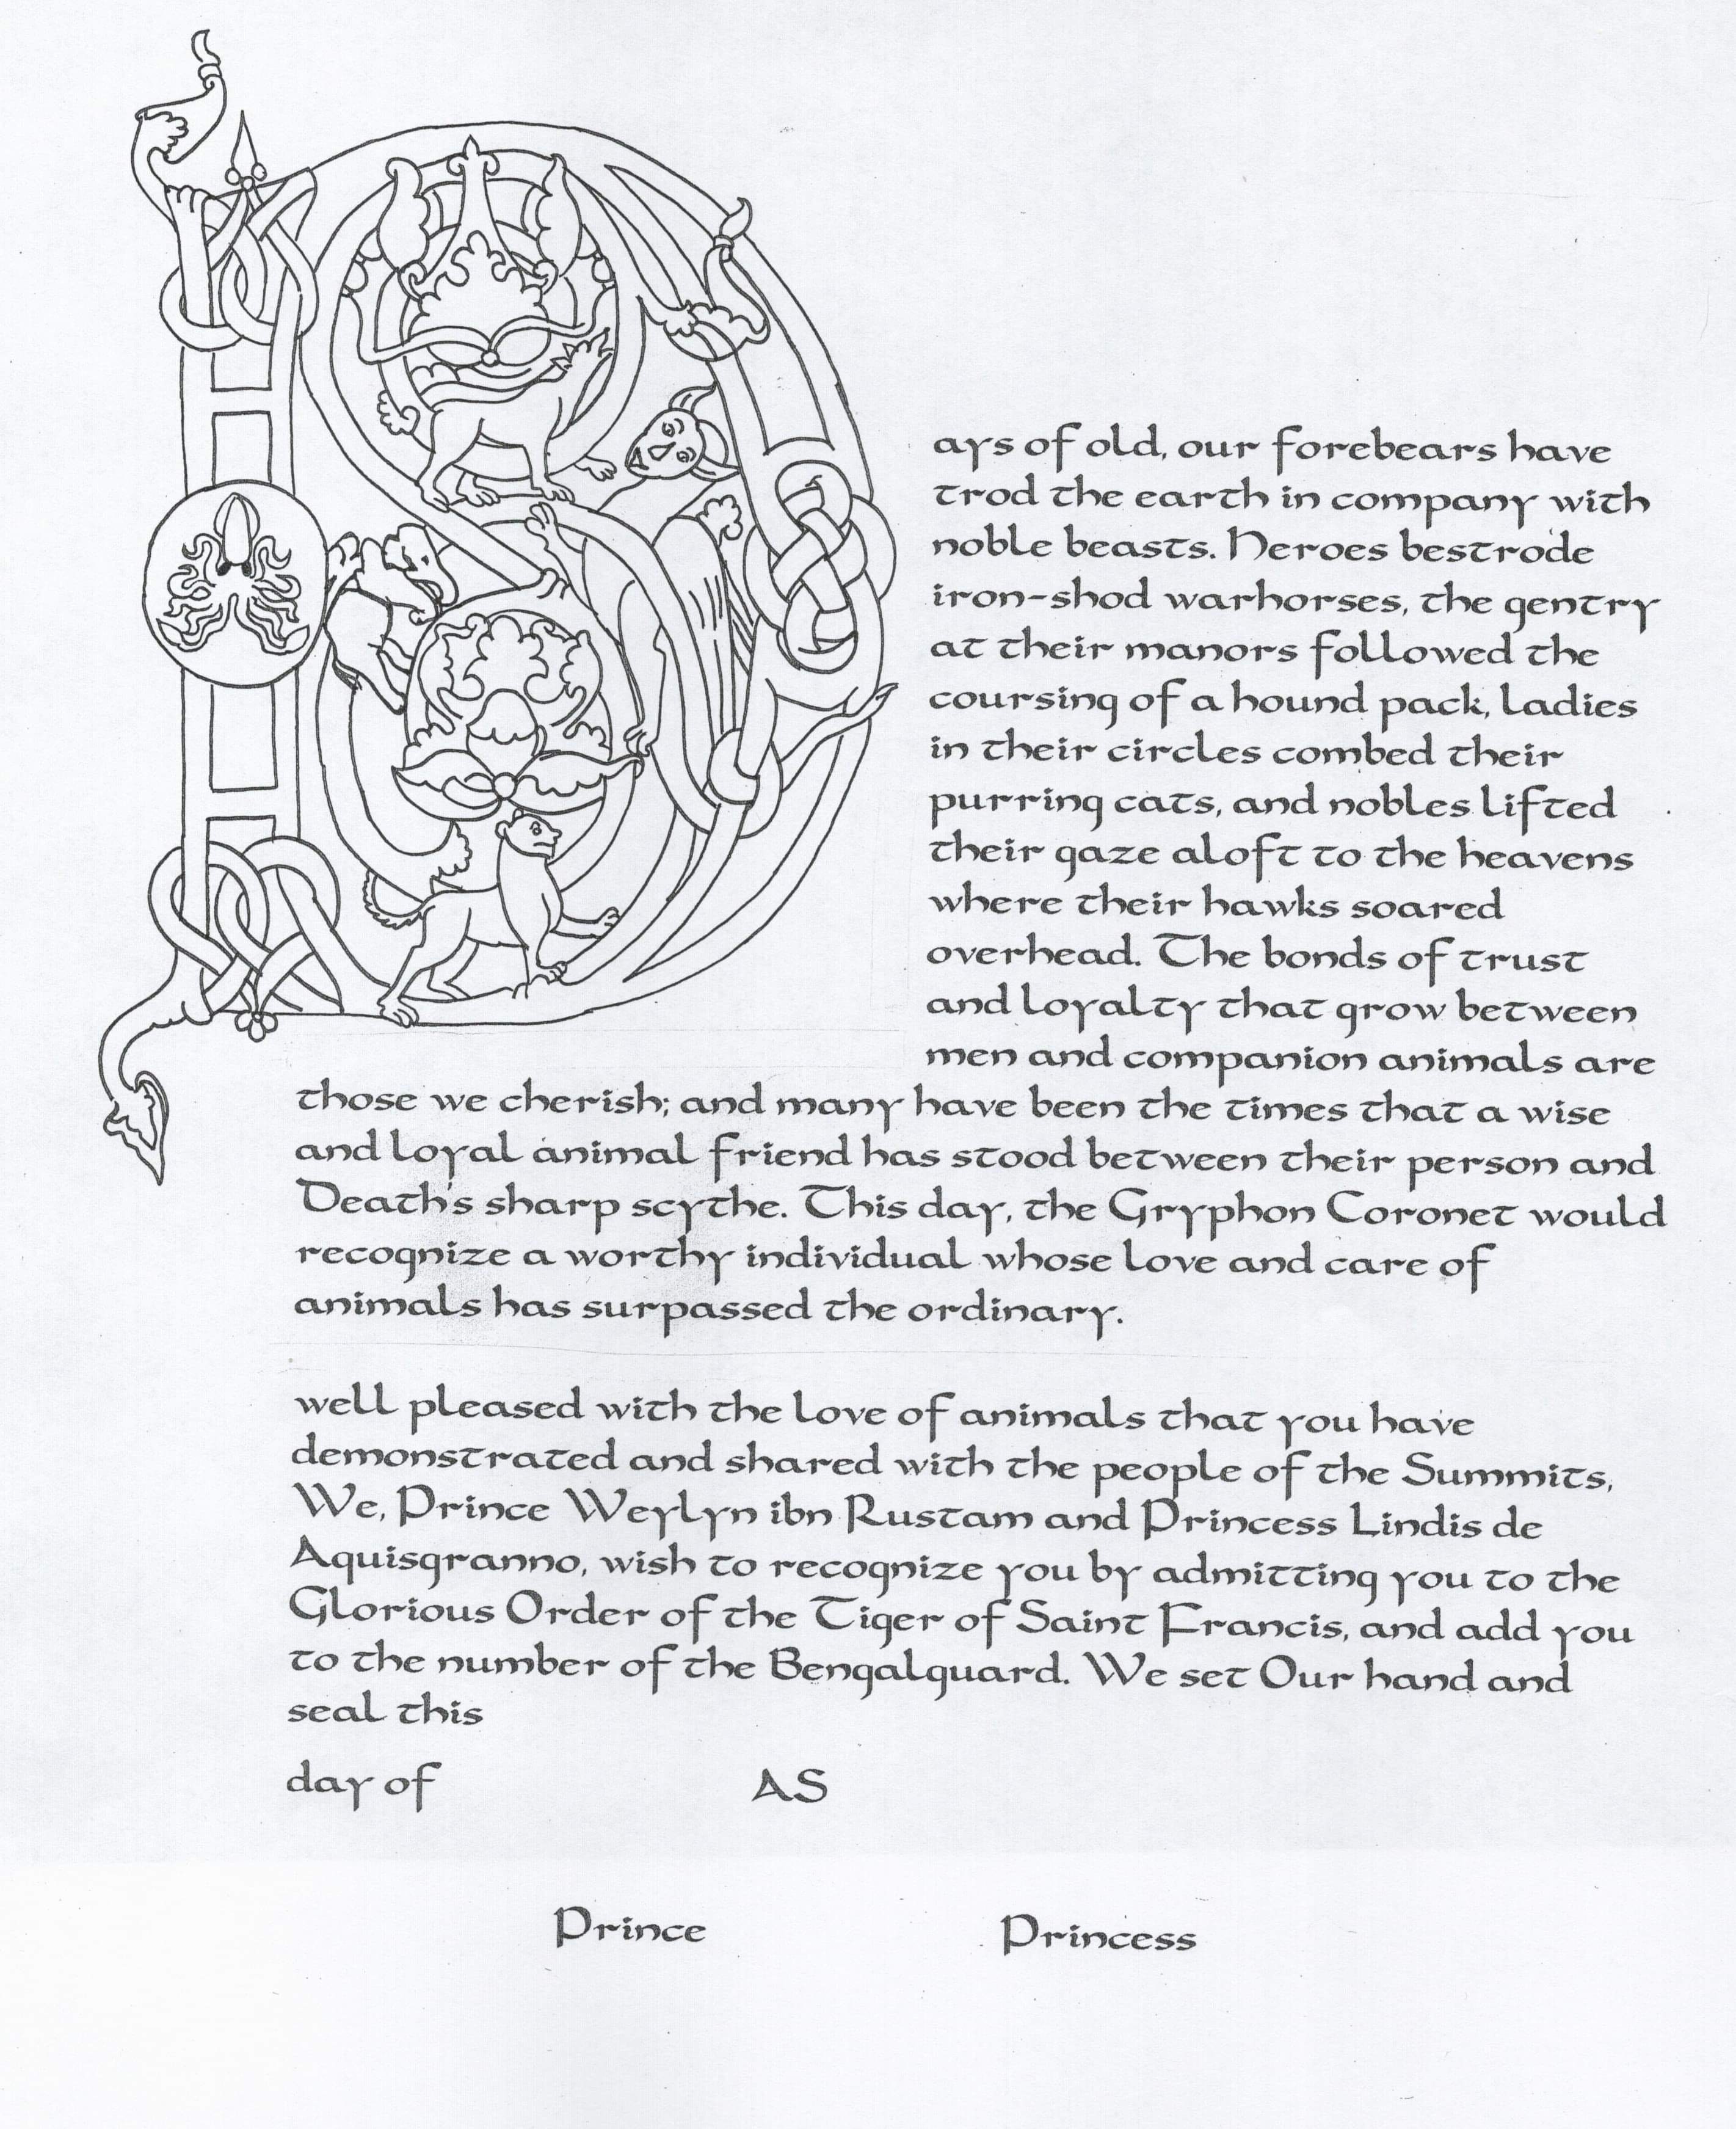 Days of old, our forebears have
trod the earth in company with
noble beasts. Heroes bestrode
iron-shod warhorses, the gentry
at their manors followed the
coursing of a hound pack, ladies
in their circles combed their
purring cats, and nobles lifted
their gaze aloft to the heavens
where their hawks soared
overhead. The bonds of trust
and loyalty that grow between
men and companion animals are
those we cherish; and many have been the times that a wise
and loyal animal friend has stood between their person and
Death's sharp scythe. This day, the Gryphon Coronet would
recognize a worthy individual whose love and care of
animals has surpassed the ordinary.
well pleased with the love of animals that you have
demonstrated and shared with the people of the Summits,
We, Prince Weylyn ibn Rustam and Princess Lindis de
Aquisgranno, wish to recognize you by admitting you to the
Glorious Order of the Tiger of Saint Francis, and add you
to the number of the Bengalguard. We set Our hand and
seal this
day of AS
Prince Princess